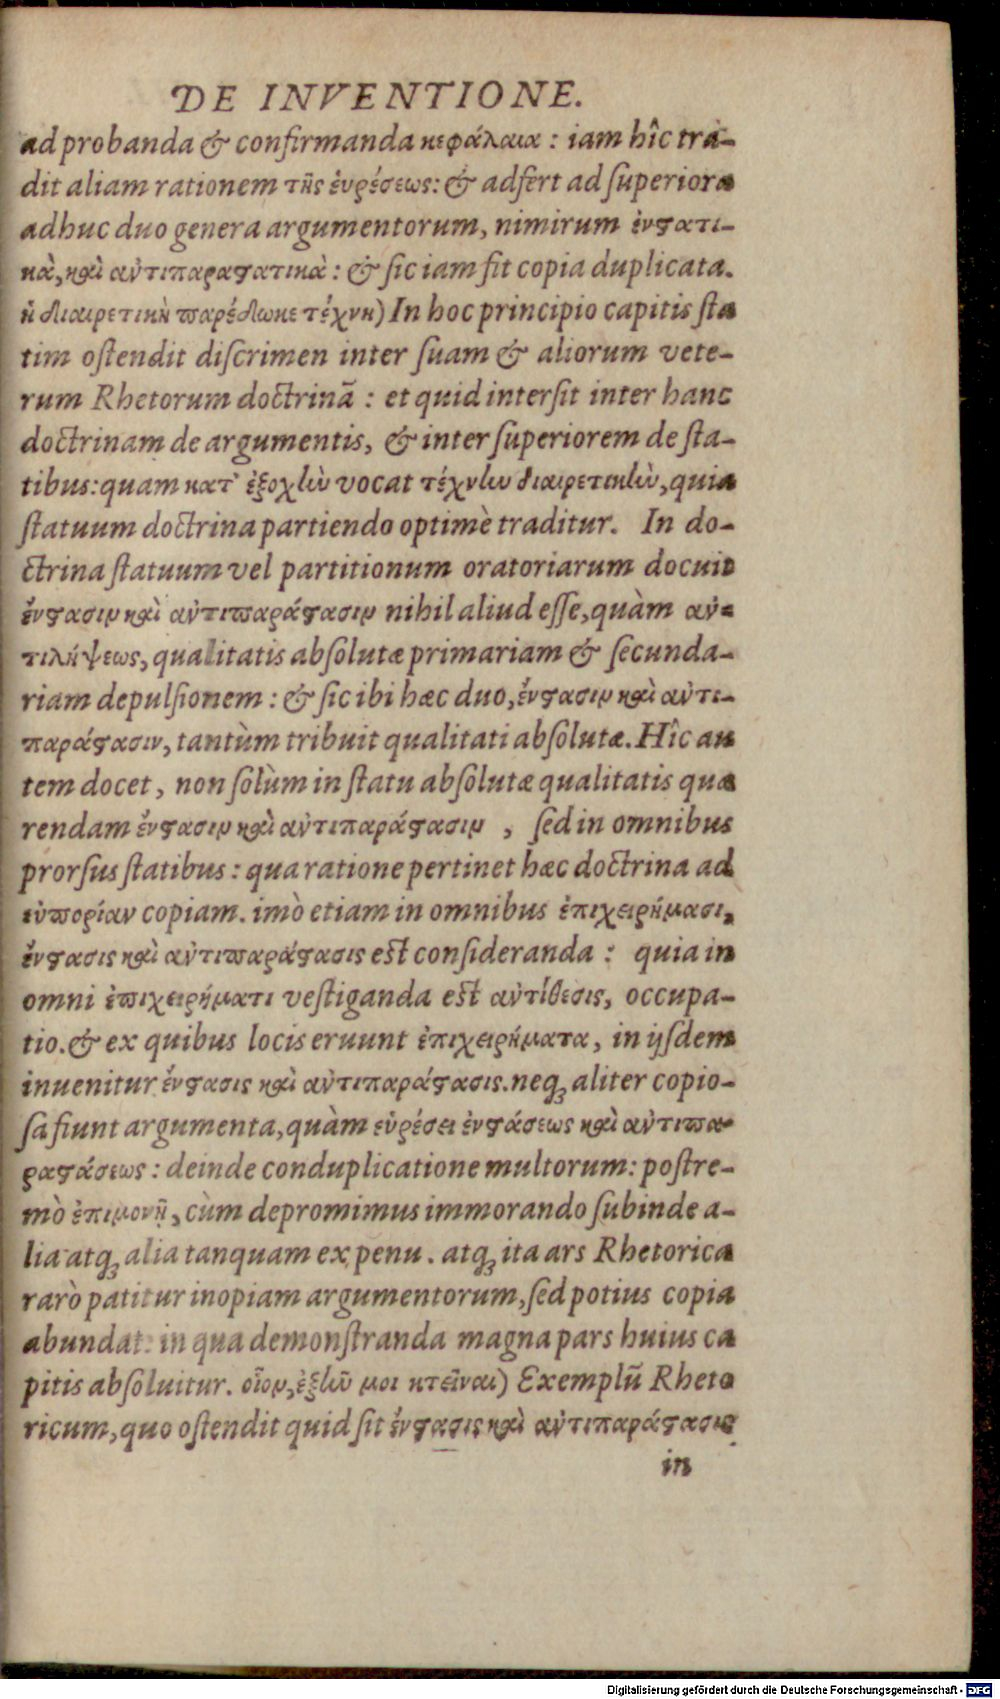 DE INVENTIONE.
ad probanda & confirmanda κεφάλαια : iam hîc tra-
dit aliam rationem τῆς ἑυρέσεως: & adfert ad ſuperiora
adhuc duo genera argumentorum, nimirum ἐνστατι-
κὰ, καὶ ἀντιπαραστατικὰ : & ſic iam fit copia duplicata.
ἡ διαιρετικὴ παρέδωκε τέχνη) In hoc principio capitis ſta
tim oſtendit diſcrimen inter ſuam & aliorum vete-
rum Rhetorum doctrinã : et quid interſit inter hanc
doctrinam de argumentis, & inter ſuperiorem de ſta-
tibus: quam κατ' ἐξοχὴν vocat τέχνην διαιρετικὴν, quia
ſtatuum doctrina partiendo optimè traditur. In do-
ctrina ſtatuum vel partitionum oratoriarum docuit
ἔνστασιν καὶ ἀντιπαράστασιν nihil aliud eſſe, quàm ἀν-
τιλήψεως, qualitatis abſolutæ primariam & ſecunda-
riam depulſionem : & ſic ibi hæc duo, ἔνστασιν καὶ ἀντι-
παράστασιν, tantùm tribuit qualitati abſolutæ. Hîc au
tem docet, non ſolùm in ſtatu abſolutæ qualitatis quæ
rendam ἔνστασιν καὶ ἀντιπαράστασιν , ſed in omnibus
prorſus ſtatibus : qua ratione pertinet hæc doctrina ad
εὐπορίαν copiam. imò etiam in omnibus ἐπιχειρήμασι,
ἔνστασις καὶ ἀντιπαράστασις eſt conſideranda : quia in
omni ἐπιχειρήματι veſtiganda eſt ἀντίθεσις, occupa-
tio. & ex quibus locis eruunt ἐπιχειρήματα, in ijſdem
inuenitur ἔνστασις καὶ ἀντιπαράστασις. neq; aliter copio-
ſa fiunt argumenta, quàm εὑρέσει ἐνστάσεως καὶ ἀντιπα-
ραστάσεως : deinde conduplicatione multorum: poſtre-
mò ἐπιμονῇ, cùm depromimus immorando ſubinde a-
lia atq; alia tanquam ex penu. atq; ita ars Rhetorica
rarò patitur inopiam argumentorum, ſed potius copia
abundat: in qua demonſtranda magna pars huius ca
pitis abſoluitur. οἷον, ἐξὸν μοι κτεῖναι) Exemplũ Rheto
ricum, quo oſtendit quid ſit ἔνστασις καὶ ἀντιπαράστασις
in
Digitalisierung gefördert durch die Deutsche Forschungsgemeinschaft - DFG